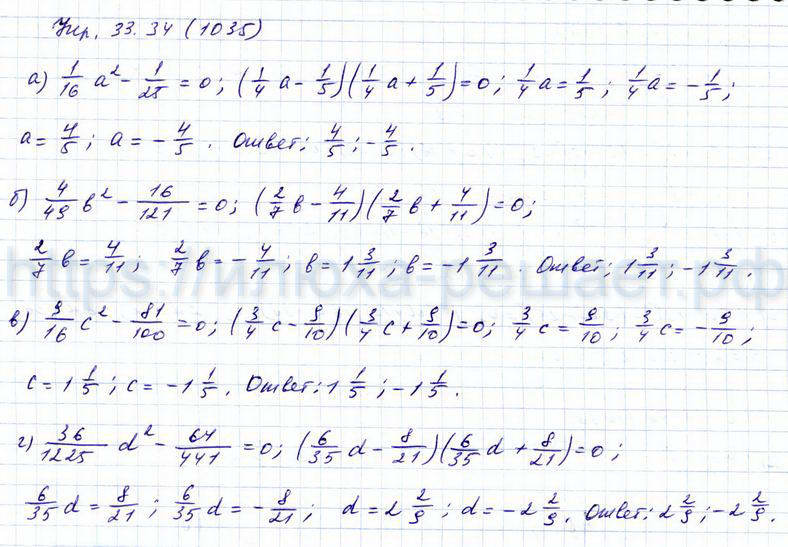 Упр. 33.34 (1035)
а) 1/16 a² - 1/25 = 0; (1/4 a - 1/5)(1/4 a + 1/5) = 0; 1/4 a = 1/5; 1/4 a = - 1/5;
a = 4/5; a = - 4/5. Ответ: 4/5; - 4/5.
б) 4/49 b² - 16/121 = 0; (2/7 b - 4/11)(2/7 b + 4/11) = 0;
2/7 b = 4/11; 2/7 b = - 4/11; b = 1 3/11; b = -1 3/11. Ответ: 1 3/11; -1 3/11.
https://илюха-решает.рф
в) 9/16 c² - 81/100 = 0; (3/4 c - 9/10)(3/4 c + 9/10) = 0; 3/4 c = 9/10; 3/4 c = - 9/10;
c = 1 1/5; c = -1 1/5. Ответ: 1 1/5; -1 1/5.
г) 36/1225 d² - 64/441 = 0; (6/35 d - 8/21)(6/35 d + 8/21) = 0;
6/35 d = 8/21; 6/35 d = - 8/21; d = 2 2/9; d = -2 2/9. Ответ: 2 2/9; -2 2/9.